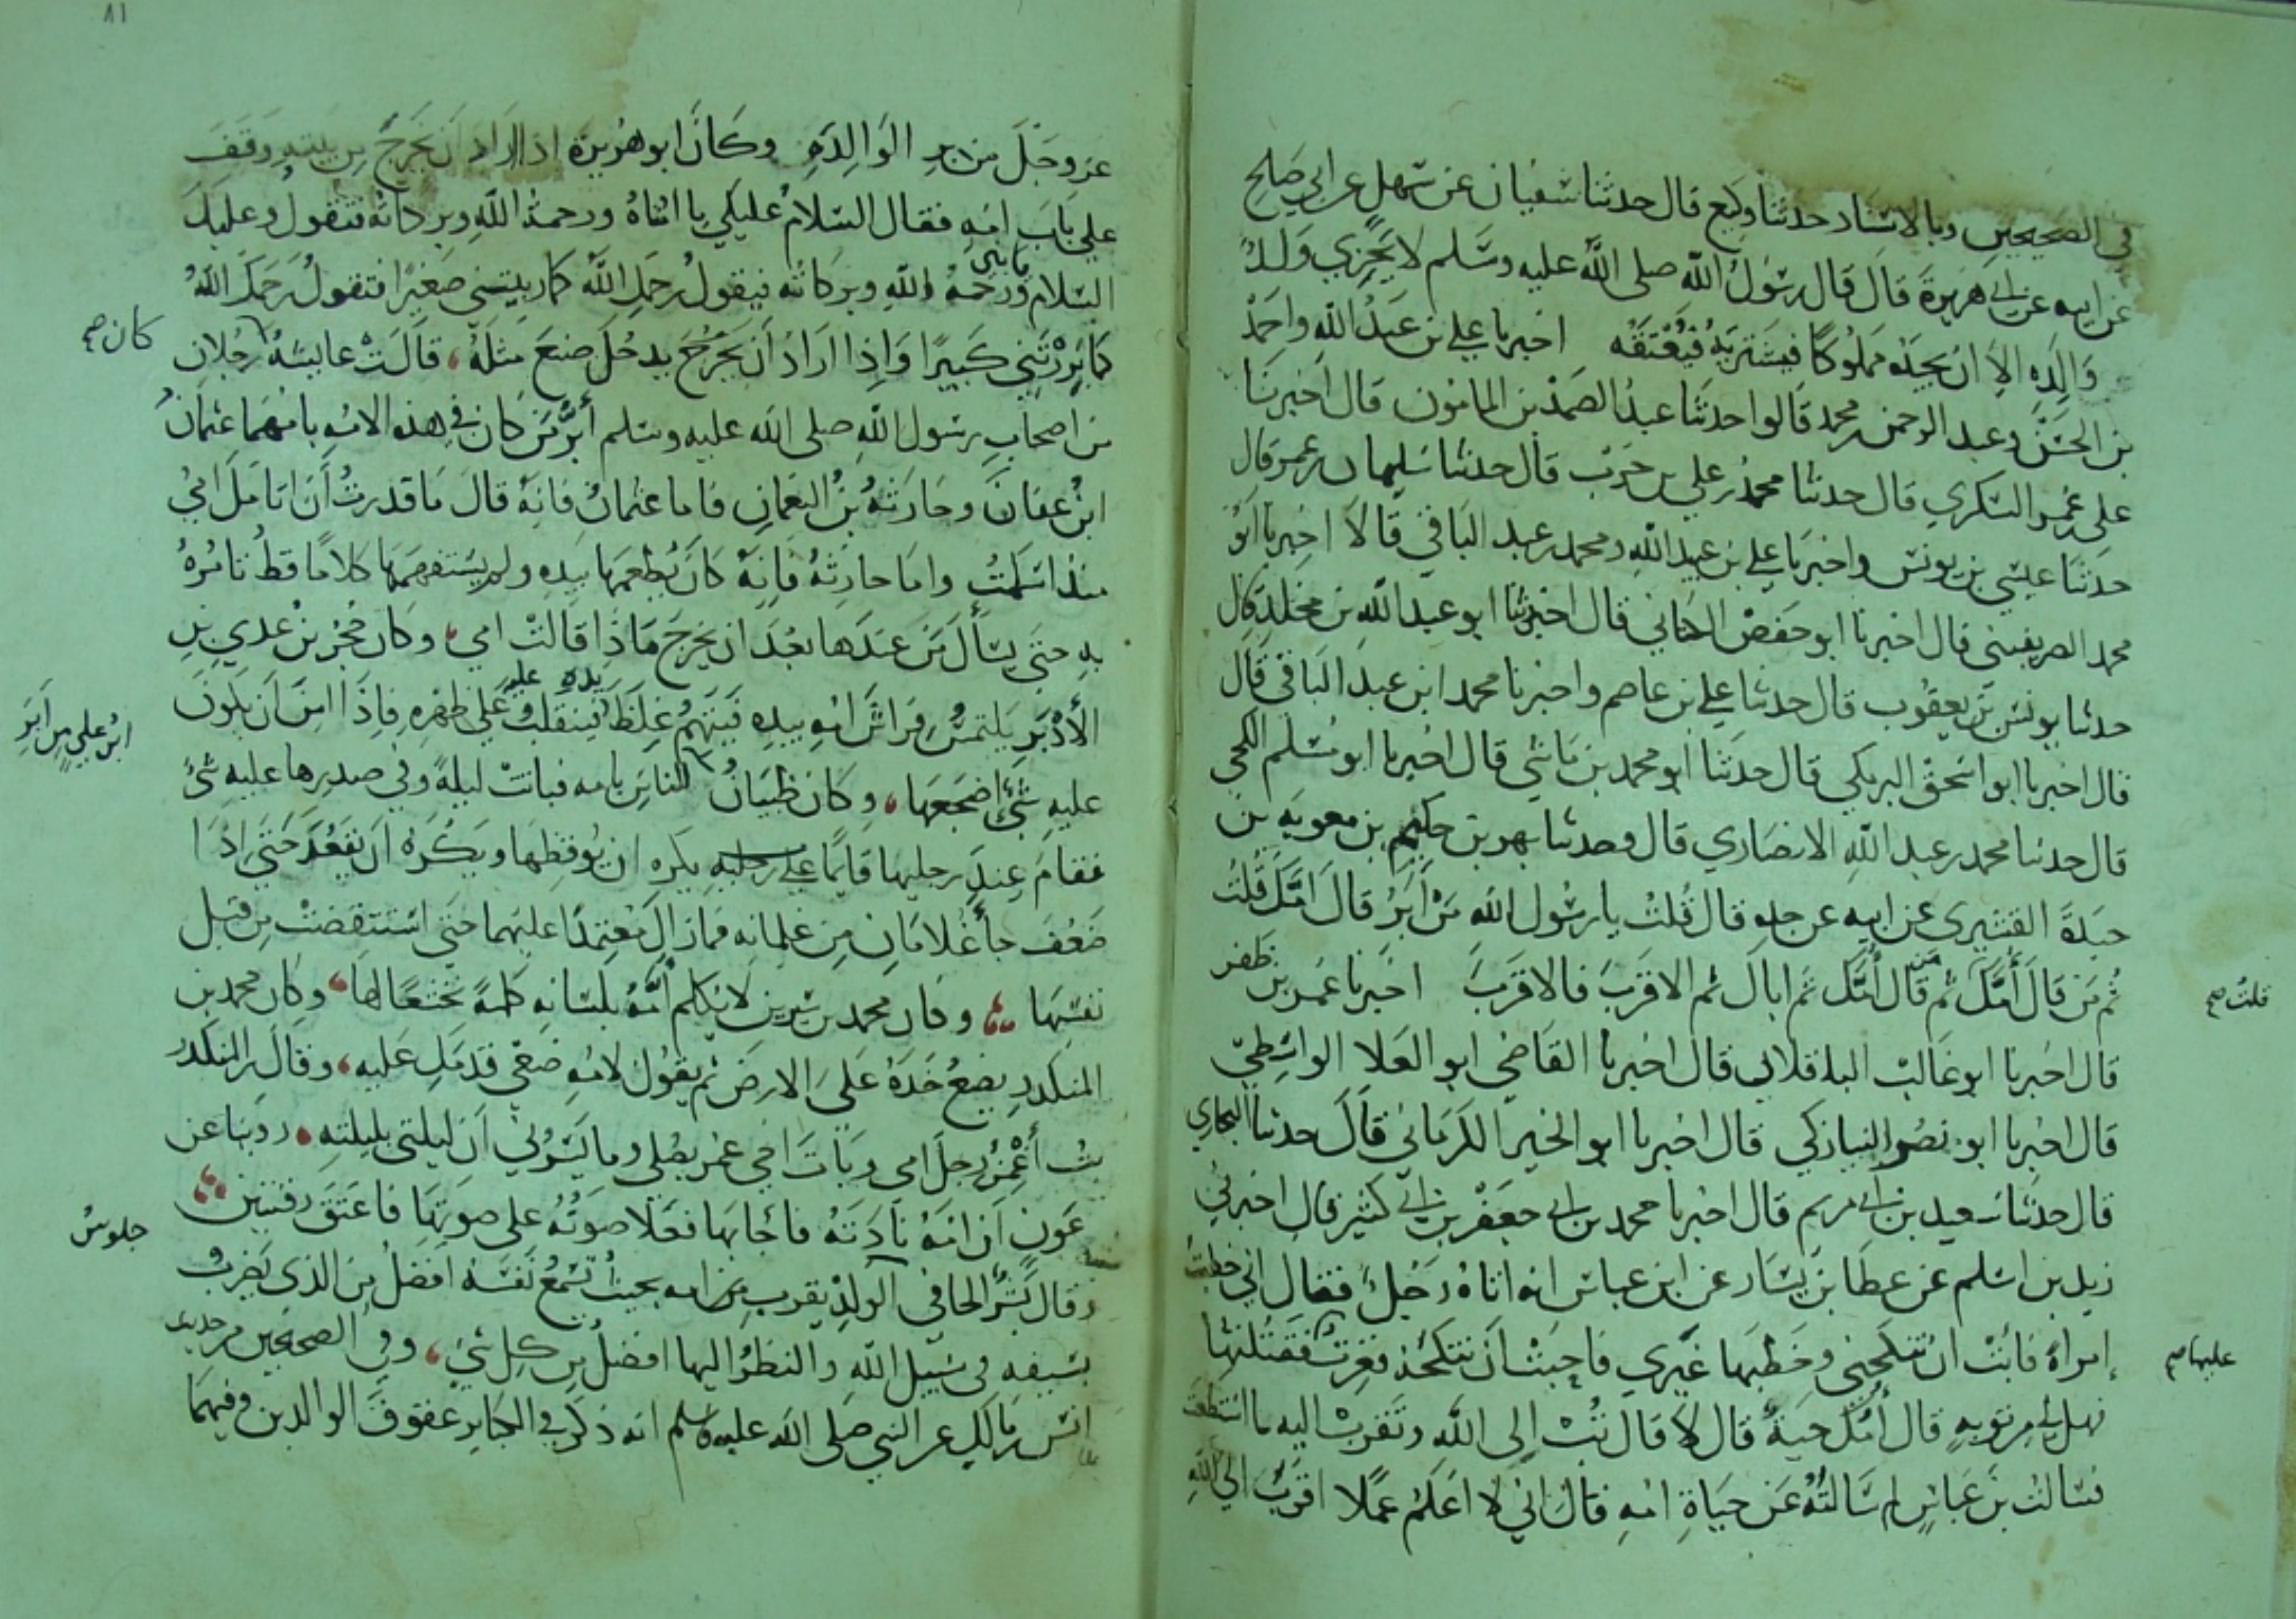 في الصحيحين وبالاسناد حدثنا وكيع قال حدثنا سفيان عن سهل عن ابي صالح
عن ابيه عن ابي هريرة قال قال رسول الله صلى الله عليه وسلم لا يجزي ولد
والده الا ان يجده مملوكا فيشتريه فيعتقه اخبرنا علي بن عبد الله واحمد
بن الحسن وعبد الرحمن بن محمد قالوا حدثنا عبد الصمد بن المامون قال اخبرنا
علي بن عمر السكري قال حدثنا محمد بن علي بن حرب قال حدثنا سليمان بن عمر قال
حدثنا عيسى بن يونس واخبرنا علي بن عبيد الله ومحمد بن عبد الباقي قالا اخبرنا ابو
محمد الصريفيني قال اخبرنا ابو حفص الكتاني قال اخبرنا ابو عبد الله بن مخلد قال
حدثنا يونس بن يعقوب قال حدثنا علي بن عاصم واخبرنا محمد ابن عبد الباقي قال
قال اخبرنا ابو اسحق البرمكي قال حدثنا ابو محمد بن ماسي قال اخبرنا ابو مسلم الكجي
قال حدثنا محمد بن عبد الله الانصاري قال وحدثنا بهز بن حكيم بن معوية بن
حيدة القشيري عن ابيه عن جده قال قلت يا رسول الله من ابر قال امك قلت
ثم من قال امك ثم من قال امك ثم اباك ثم الاقرب فالاقرب اخبرنا عمر بن ظفر
قلت صح
قال اخبرنا ابو غالب الباقلاني قال اخبرنا القاضي ابو العلا الواسطي
قال اخبرنا ابو نصر النيازكي قال اخبرنا ابو الخير الكرماني قال حدثنا البخاري
قال حدثنا سعيد بن ابي مريم قال اخبرنا محمد بن ابي جعفر بن ابي كثير قال اخبرني
زيد بن اسلم عن عطا بن يسار عن ابن عباس انه اتاه رجل فقال اني خطبت
امراة فابت ان تنكحني وخطبها غيري فاحبت ان تنكحه فغرت فقتلتها
عليها صح
فهل لي من توبه قال امك حية قال لا قال تب الى الله وتقرب اليه ما استطعت
فسالت بن عباس لم سالته عن حياة امه فقال اني لا اعلم عملا اقرب الى الله
٨١
عز وجل من بر الوالدة وكان ابو هريرة اذا اراد ان يخرج من بيته وقف
على باب امه فقال السلام عليكي يا امتاه ورحمة الله وبركاته فتقول وعليك
السلام يا بني ورحمة الله وبركاته فيقول رحمك الله كما ربيتني صغيرا فتقول رحمك الله
كما بررتني كبيرا واذا اراد ان يخرج يدخل صنع مثله قالت عايشة رجلان
كان صح
من اصحاب رسول الله صلى الله عليه وسلم أبر من كان في هذه الامه بامهما عثمان
ابن عفان وحارثة بن النعمان فاما عثمان فانه قال ما قدرت ان اتامل امي
منذ اسلمت واما حارثة فانه كان يطعمها بيده ولم يستفهمها كلاما قط تامره
به حتى يسأل من عندها بعد ان يخرج ماذا قالت امي وكان حجر بن عدي بن
الأدبر يلتمس فراش امه بيده فيتهم غلظ يده فينقلب عليه على ظهره فاذا امن ان يكون
عليه شيئ اضجعها وكان ظبيان الناس بامه فباتت ليلة وفي صدرها عليه شئ
ابن علي من ابر
فقام عند رجليها قايما على رجليه يكره ان يوقظها ويكره ان يقعد حتى اذا
ضعف جا غلامان من غلمانه فما زال معتمدا عليهما حتى استيقضت من قبل
نفسها وكان محمد بن سيرين لا يكلم امه بلسانه كله تخشعا لها وكان محمد بن
المنكدر يضع خده على الارض ثم يقول لامه ضعي قدمك عليه وقال بن المنكدر
بت أغمز رجل امي وبات اخي عمر يصلي وما يسرني ان ليلتي بليلته روينا عن
عون ان امه نادته فاجابها فعلا صوته على صوتها فاعتق رقبتين
وقال بشر الحافي الولد يقرب من امه بحيث تسمع نفسه افضل من الذي يضرب
جلوس
بسيفه في سبيل الله والنظر اليها افضل من كل شئ وفي الصحيحين من حديث
انس بن مالك عن النبي صلى الله عليه وسلم انه ذكر في الكباير عقوق الوالدين وفيهما